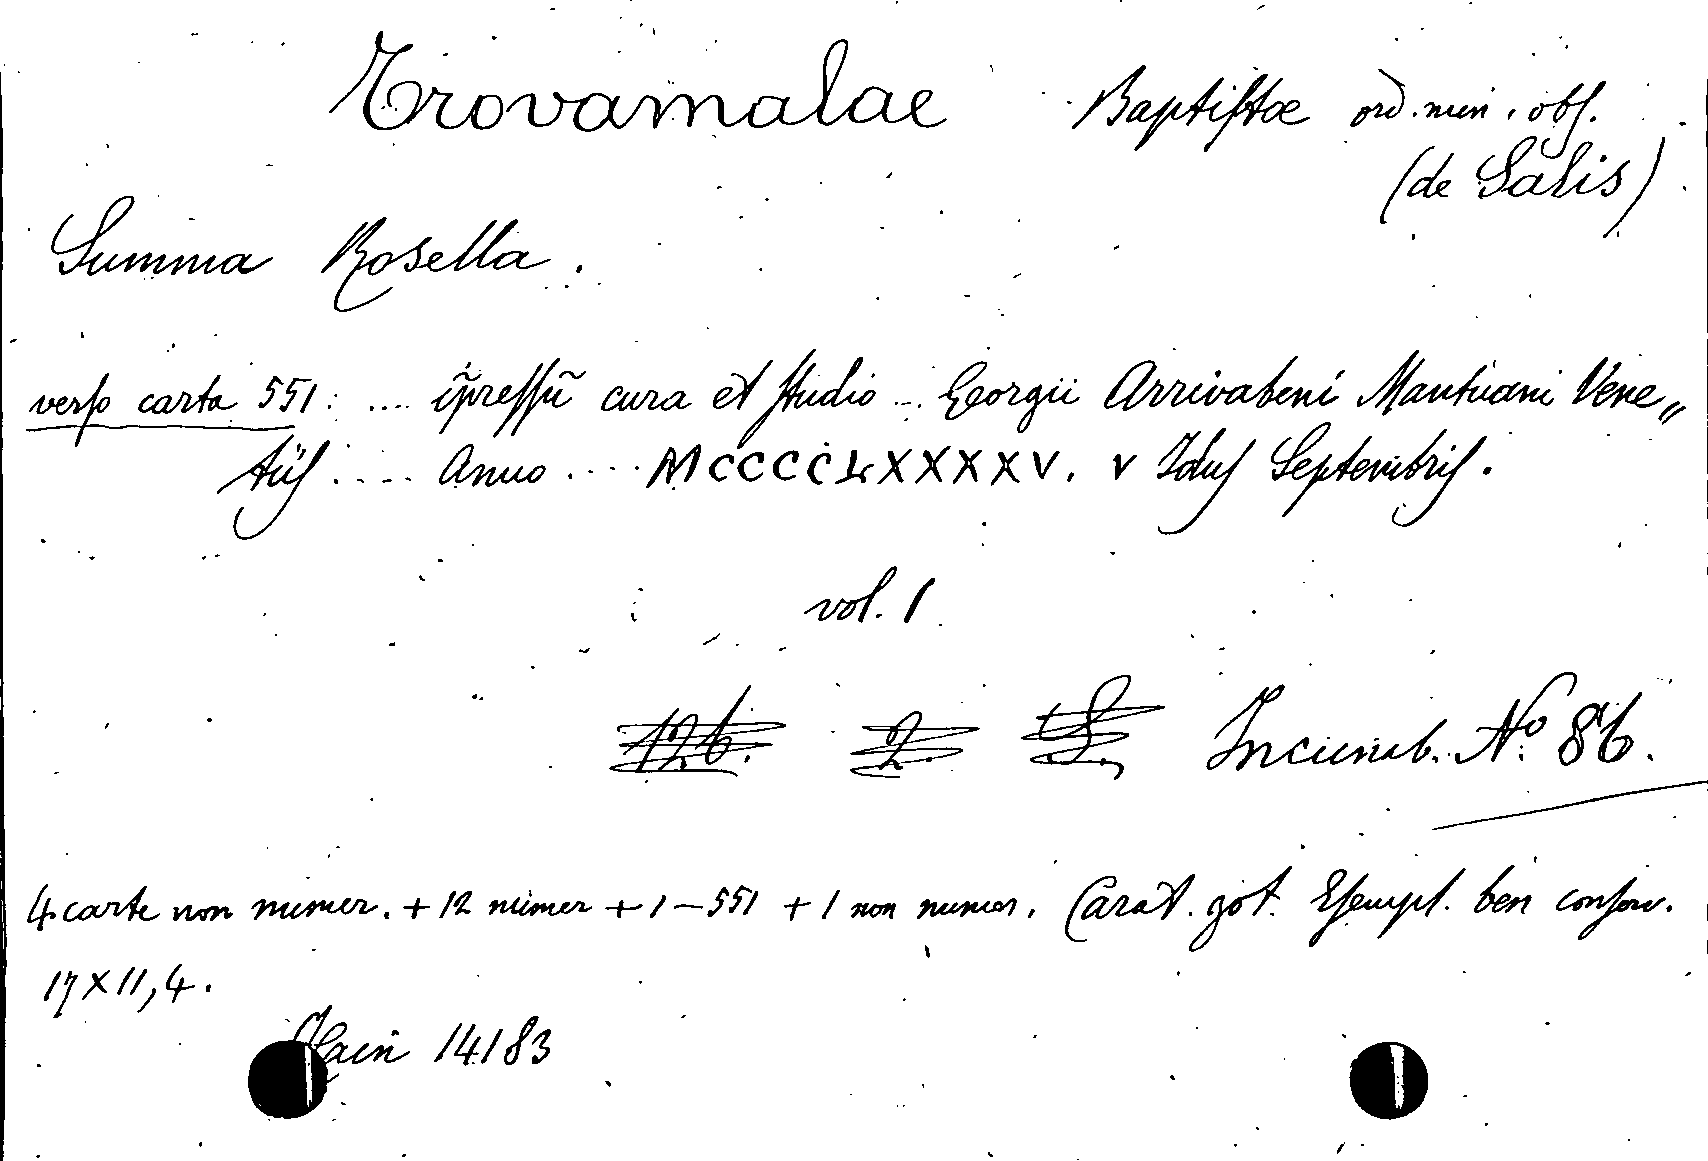 Trovamalae Baptiſtae ord. min. obſ.
(de Salis)
Summa Rosella.
verſo carta 551: .... ĩpreſſũ cura et ſtudio ... Georgii Arrivabeni Mantuani Vene„
tiiſ ..... Anno ..... MCCCCLXXXXV. v Iduſ Septembriſ.
vol. 1
12.b. 2. S. Incunab. No. 86.
4 carte non numer. + 12 numer + 1 – 551 + 1 non numer. Carat. got. Eſempl. ben conſerv.
17 X 11,4.
Hain 14183